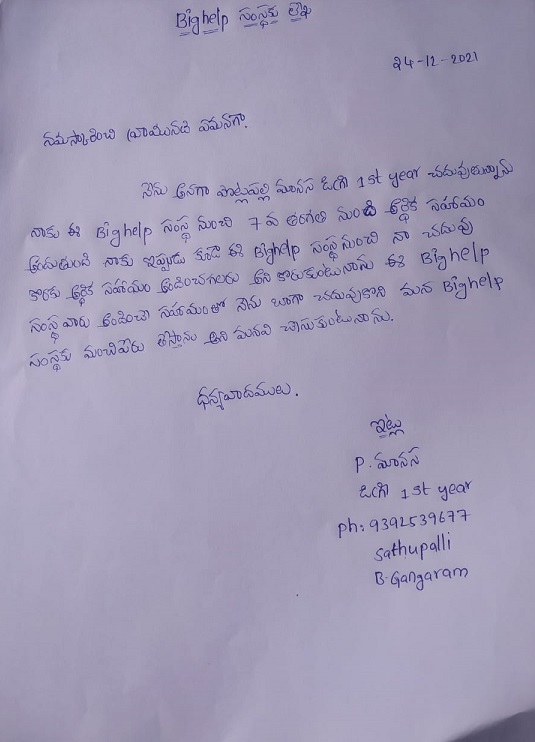 Bighelp సంస్థకు లేఖ
24-12-2021
నమస్కరించి వ్రాయునది ఏమనగా.
నేను అనగా పొట్లపల్లి మానస డిగ్రీ 1st year చదువుతున్నాను
నాకు ఈ Bighelp సంస్థ నుంచి 7 వ తరగతి నుండి ఆర్థిక సహాయం
అందుతుంది నాకు ఇప్పుడు కూడా ఈ Bighelp సంస్థ నుంచి నా చదువు
కొరకు ఆర్థిక సహాయం అందించగలరు అని కోరుకుంటునాను ఈ Bighelp
సంస్థ వారు అందించే సహాయంతో నేను బాగా చదువుకొని మన Bighelp
సంస్థకు మంచిపేరు తెస్తాను అని మనవి చేసుకుంటునాను.
ధన్యవాదములు.
ఇట్లు
P. మానస
డిగ్రీ 1st year
ph: 9392539677
Sathupalli
B.Gangaram